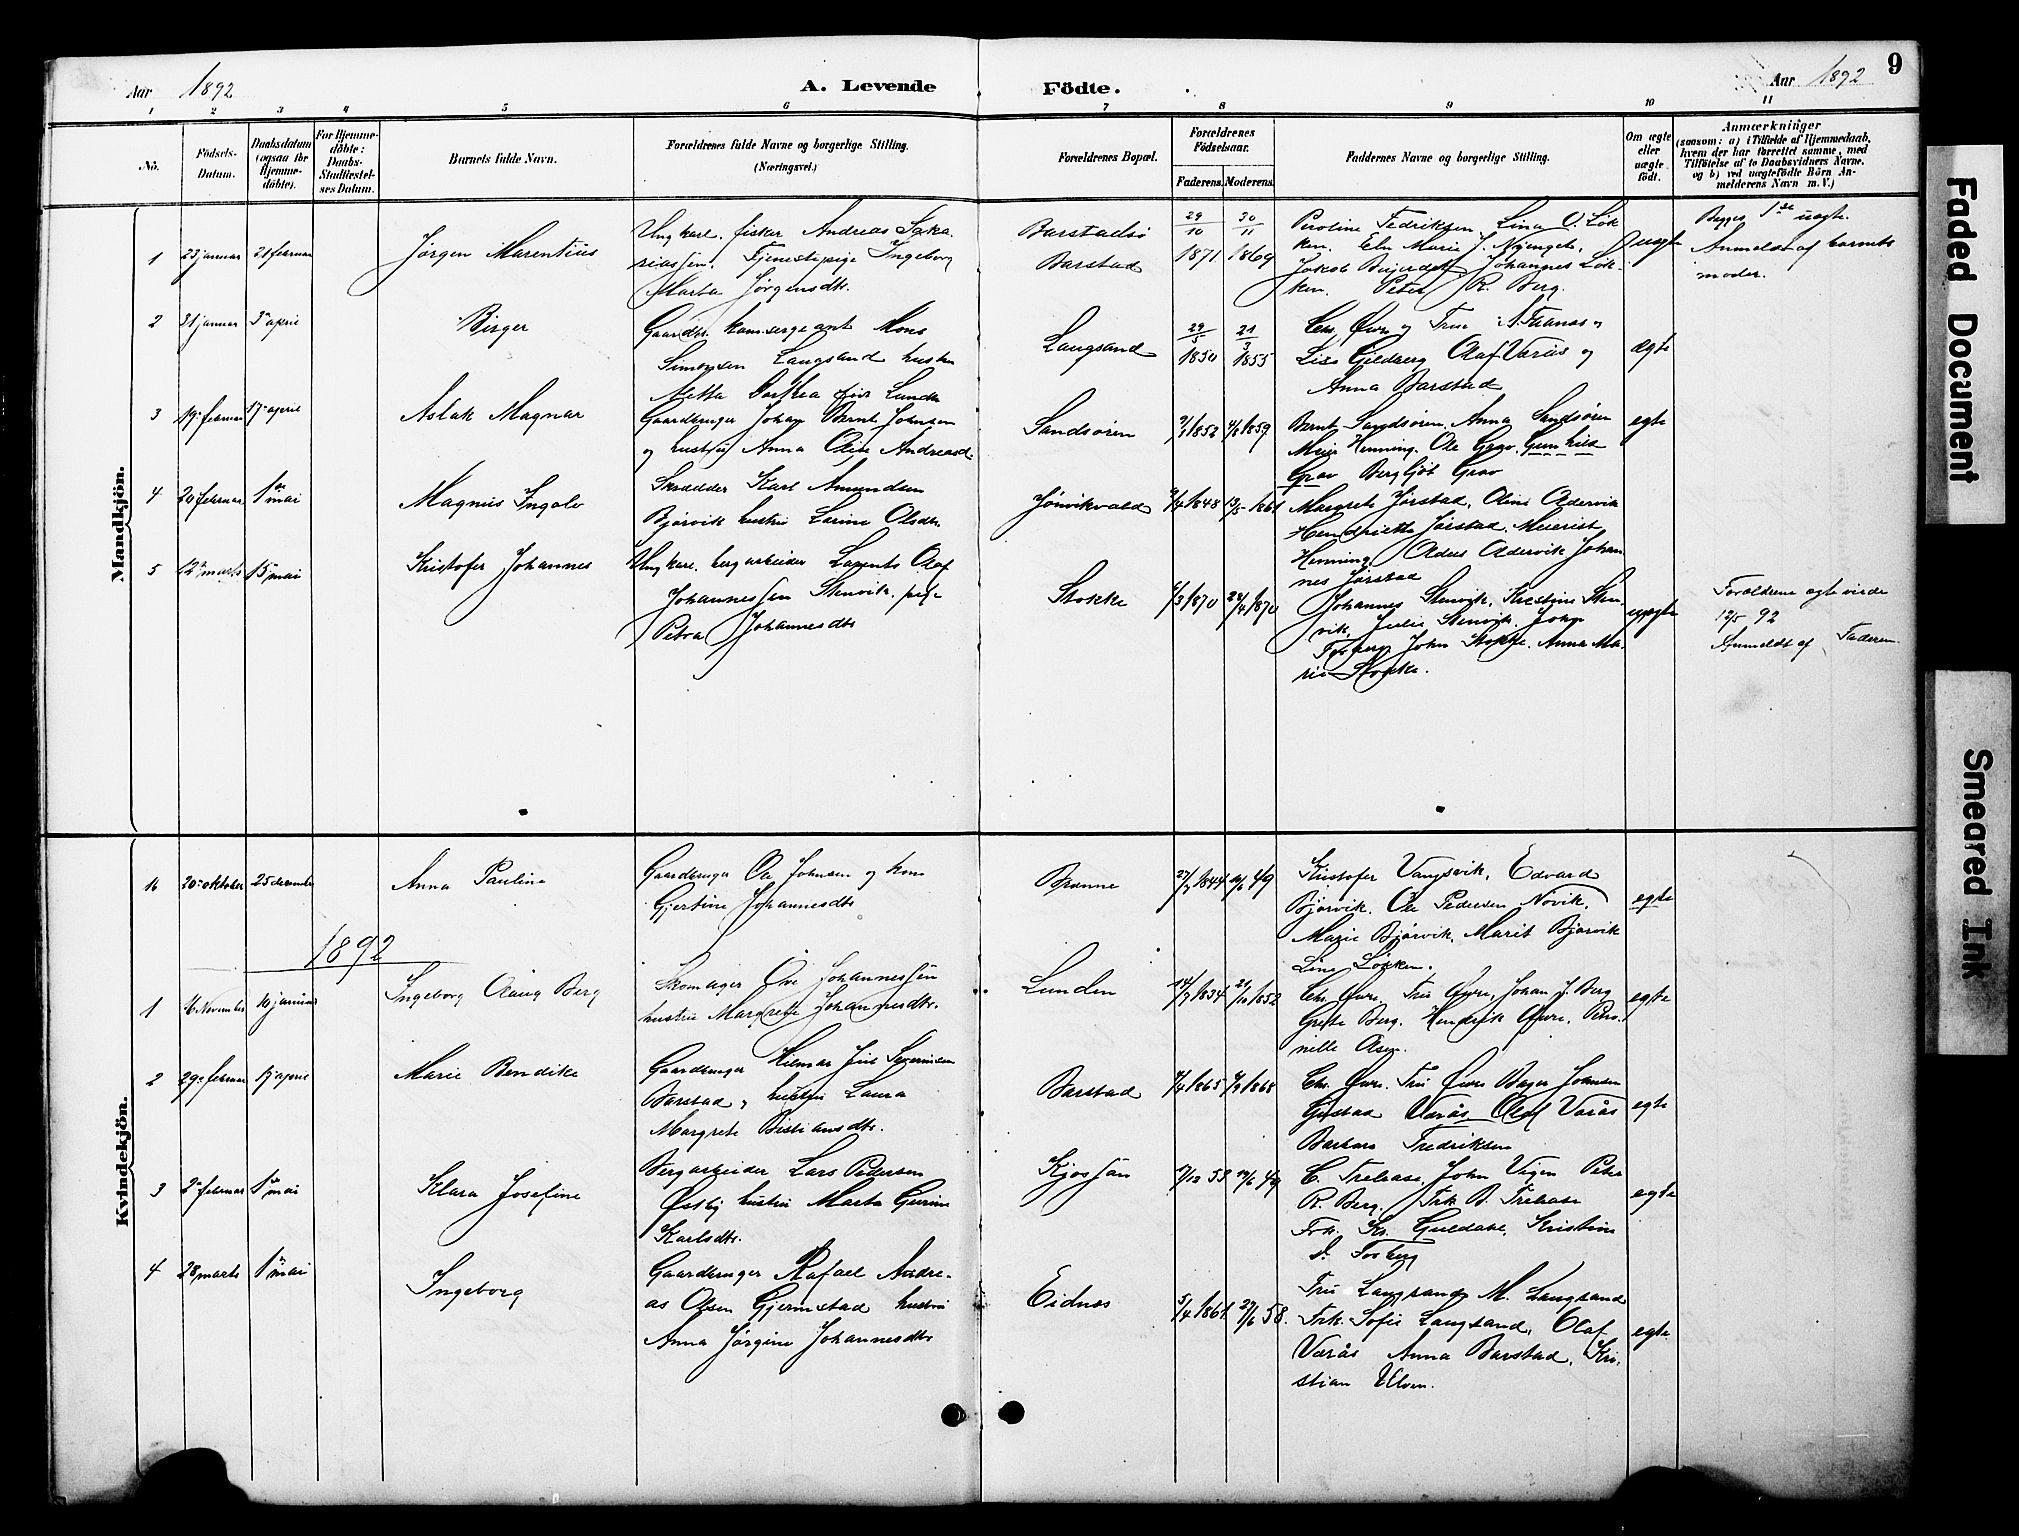 Aar 1892 A. Levende Födte. Aar 1892 9
1 2 3 4 5 6 7 8 9 10 11
No. Födsels-Datum. Daabsdatum (ogsaa for Hjemme-döbte). For Hjemme-döbte: Daabs-Stadfæstel-ses Datum. Barnets fulde Navn. Forældrenes fulde Navne og borgerlige Stilling. (Næringsvei.) Forældrenes Bopæl. Forældrenes Födselsaar. Faderens. Moderens. Faddernes Navne og borgerlige Stilling. Om ægte eller uægte födt. Anmærkninger (saasom: a) i Tilfælde af Hjemmedaab, hvem der har forrettet samme, med Tilföielse af to Daabsvidners Navne, og b) ved uægtefödte Börn An-melderens Navn m. V.)
Mandkjön.
1 23 januar 21 februar Jørgen Marentius
Ungkarl. fisker Andreas Saka
riassen. Tjenestepige Ingeborg
Marta Jørgensdtr.
Barstadsö
Barstad
29/10 1871 30/11 1869
Peroline Fedriksen, Lina O. Løk
ken. Eln Marie J.
Jakob Johannes Løk-
ken. Peter R. Berg.
uægte
Begges 1ste uægte.
Anmeldt af barnets
moder.
2 31 januar 3 april Birger
Gaardbr. kom.sergeant Mons
Simonsen Langsand hustru
Metta Dortea född Lunde
Langsand
29/5 1850 21/3 1855
Chr. Øwre og Frue A. Aanas og
Lise Gjelberg Olaf Værås og
Anna Barstad
ægte
3 19 februar 17 april Aslak Magnar
Gaardbruger Johan Bernt Johnsen
og hustru Anna Oline Andreasd.
Sandsören
1852 1859
Bernt Sandsören, Anna Sandsören
Henning, Ole Grav, Gunhild
Grav Bergljöt Grav
egte
4 20 februar 1 mai Magnus Ingolv
Skrædder Karl Amundsen
Bjørvik hustru Larine Olsdtr.
Jönvikvald
1848 13/5 1861
Margrete Jørstad, Oline Adervik
Hendriette Jørstad, Meierist
Henning, Adervik Johan
nes Jørstad
5 12 marts 15 mai Kristofer Johannes
Ungkarl. bergarbeider Laurents Olaf
Johannessen Stenvik. pige
Petra Johannesdtr
Stokke
1870 24/4 1870
Johannes Stenvik, Kristine Sten
vik, Julie Stenvik, Johan
Forberg John Stokke. Anna Ma-
rie Stokke.
uægte
Forældrene egteviede
12/5 92
Anmeldt af Faderen
Kvindekjön.
16 20 oktober 25 december Anna Pauline
Gaardbruger Ole Johnsen og kone
Gjertine Johannesdtr
Brænne
27/7 1844 49
Kristofer Vangsvik, Edvard
Bjørvik. Ole Pedersen Növik.
Marie Bjørvik, Marit Bjørvik
Lina Løkken.
egte
1892
1 16 November 10 januar Ingeborg Berg
Skomager Ove Johannessen
hustru Margrete Johannesdtr.
Lunden
14/7 1834 29/10 1852
Chr. Øwre, Fru Øwre, Johan J. Berg
Grete Berg. Hendrik Øwre, Petro-
nelle Olsen.
egte
2 29 februar 17 april Marie Bendike
Gaardbruger Hilmar Juul Severinsen
Barstad, hustru Laura
Margrete Bistiansdtr.
Barstad
1865 1868
Chr. Øwre. Fru Øwre Johnsen
Gustad Værås Olaf Værås
Barbara Fredriksen
egte
3 2 februar 1 mai Klara Josefine
Bergarbeider Lars Pedersen
Østby hustru Marta Gurine
Karlsdtr.
Kjössön
17/12 53 49
C. Trelease, John Vigen Peter
R. Berg. Frk B. Trelease
Frk. Kr. Guldahl, Kristine
d. Forberg
egte
4 28 marts 1 mai Ingeborg
Gaardbruger Rafael Andre-
as Olsen Gjermstad hustru
Anna Jørgine Johannesdtr
Eidnes
5/4 1861 27/6 58.
Fru Langsand, M. Langsand
Frk. Sofie Langsand, Olaf
Værås Anna Barstad, Kri-
stian Ulven.
egte
Faded Document
Smeared Ink